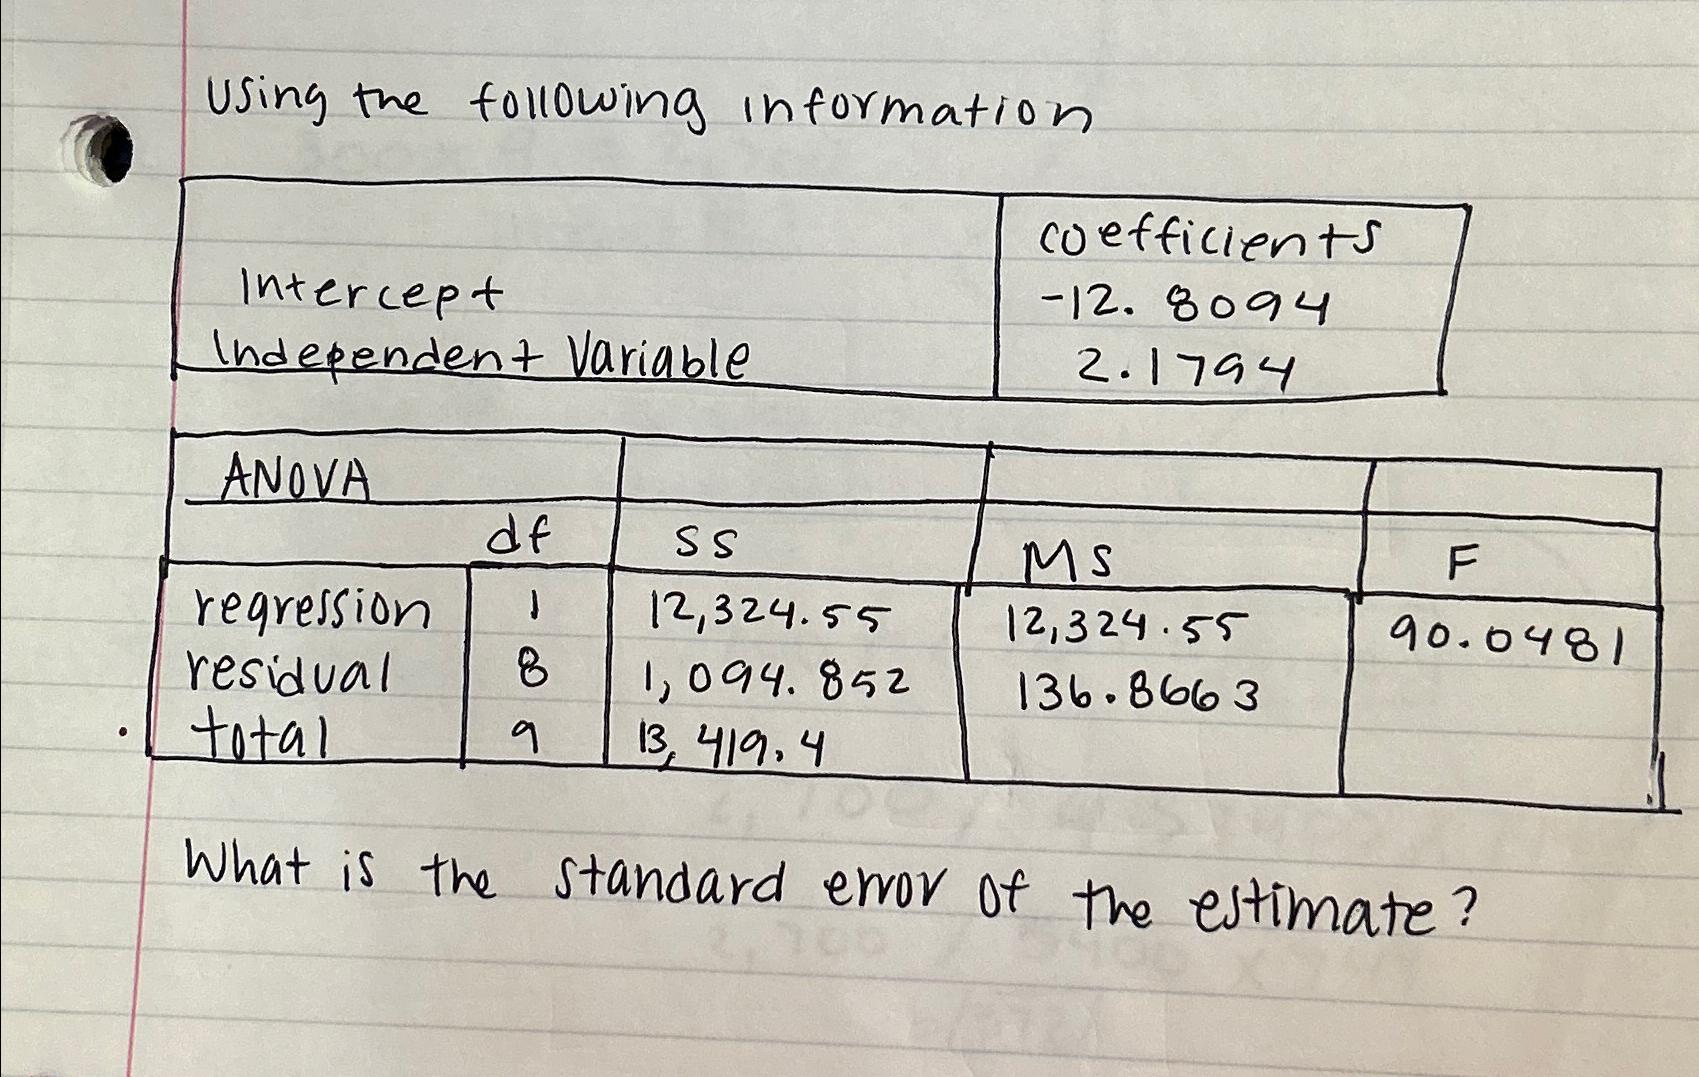 Using the following information
coefficients
Intercept -12.8094
Independent Variable 2.1794
ANOVA
df SS MS F
regression 1 12,324.55 12,324.55 90.0481
residual 8 1,094.852 136.8663
total 9 13,419.4
What is the standard error of the estimate?